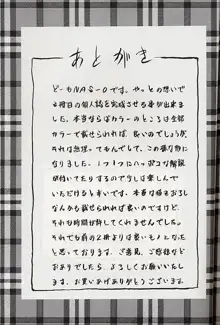 あとがき
どーもNAS-Oです。やっとの想いで
4冊目の個人誌を完成させる事が出来ま
した。本当ならばカラーのところは全部
カラーで載せられれば良いのでしょうが
それは無理ってもんでして、この様な形に
なりました。1つ1つにハッポコな解説
が付いてたりするのでそれも楽しんで
いただけると幸いです。本当は描きおろし
なんかも載せられれば良いのですけど
それも時間が許してくれませんでした。
それでも前の2冊よりは良いモノになった
と思っております。ご意見、ご感想など
おありでしたら、よろしくお願いいた
します。お買いあげありがとうございます